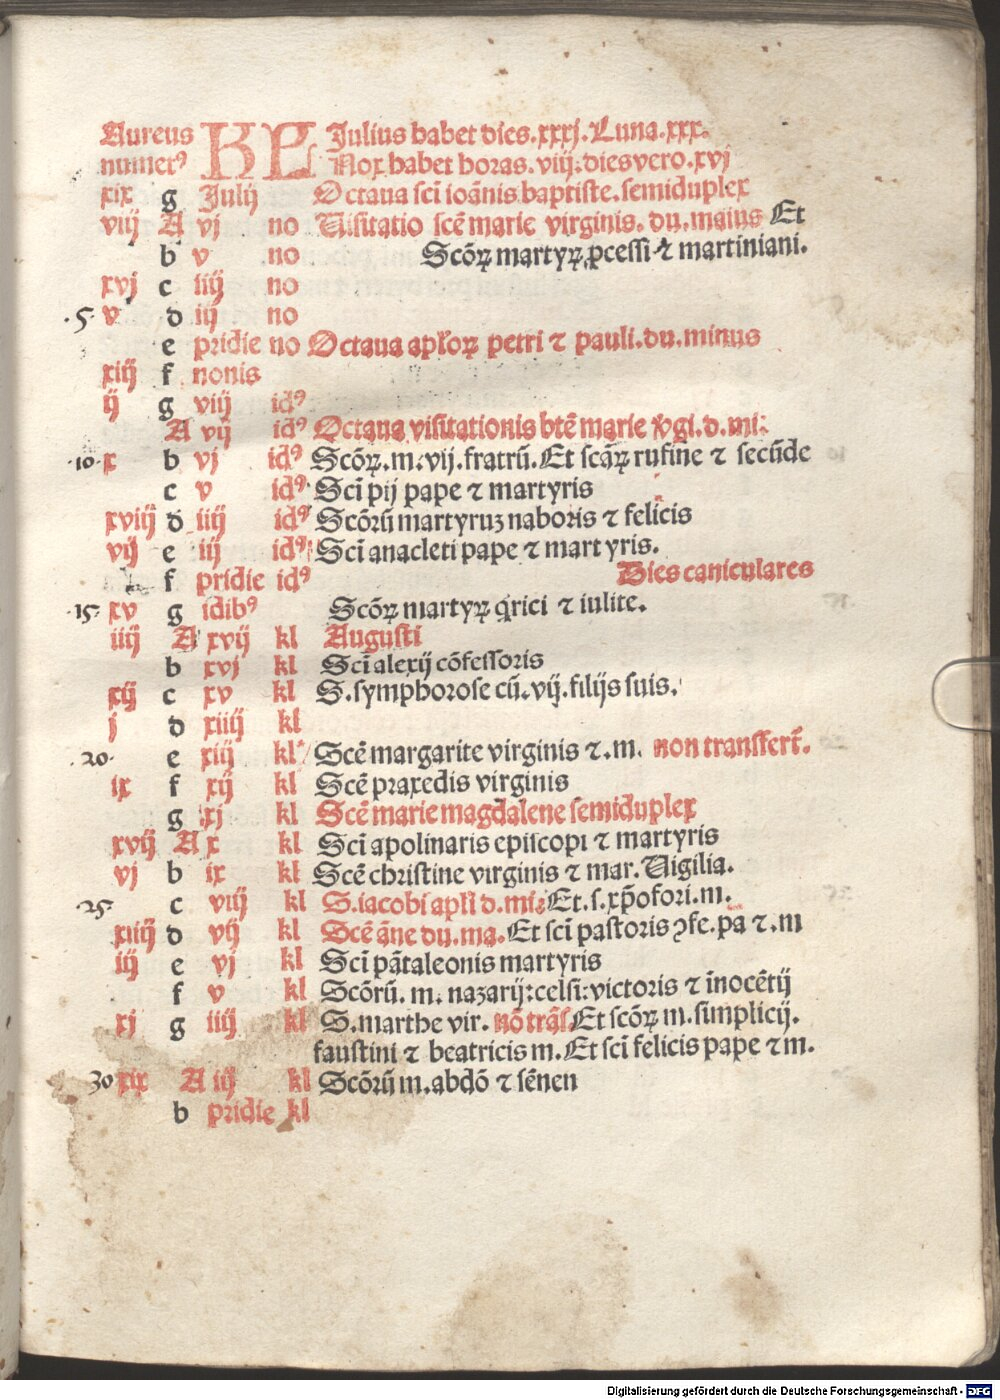 Aureus KL Julius habet dies.xxxj.Luna.xxx.
numerꝰ Nox habet horas.viij.dies vero.xvj
xix g Julij Octaua sci̅ ioa̅nis baptiste.semiduplex
viij A vj no Uisitatio sce̅ marie virginis. du.maius Et
b v no Sco̅ꝝ martyꝝ ꝓcessi ⁊ martiniani.
xvj c iiij no
.5. v d iij no
e pridie no Octaua apl̓oꝝ petri ⁊ pauli.du.minus
xiij f nonis
ij g viij idꝰ
A vij idꝰ Octaua visitationis bte̅ marie v̓gi.d.mi:
.10. x b vj idꝰ Sco̅ꝝ.m.vij.fratru̅.Et sca̅ꝝ rufine ⁊ secu̅de
c v idꝰ Sci̅ pij pape ⁊ martyris
xviij d iiij idꝰ Sco̅ru̅ martyruꝫ naboris ⁊ felicis
vij e iij idꝰ Sci̅ anacleti pape ⁊ martyris.
f pridie idꝰ Dies caniculares
15. xv g idibꝰ Sco̅ꝝ martyꝝ q̓rici ⁊ iulite.
iiij A xvij kl Augusti
b xvj kl Sci̅ alexij co̅fessoris
xij c xv kl S.symphorose cu̅.vij.filijs suis.
j d xiiij kl
.20. e xiij kl Sce̅ margarite virginis ⁊.m. non transfert̅.
ix f xij kl Sce̅ praxedis virginis
g xj kl Sce̅ marie magdalene semiduplex
xvij A x kl Sci̅ apolinaris episcopi ⁊ martyris
vj b ix kl Sce̅ christine virginis ⁊ mar.Uigilia.
.25. c viij kl S.iacobi apl̅i d.mi:Et.s.xp̅ofori.m.
xiiij d vij kl Sce̅ a̅ne du.ma.Et sci̅ pastoris ꝯfe.pa ⁊.m
iij e vj kl Sci̅ pa̅taleonis martyris
f v kl Sco̅ru̅. m. nazarij:celsi:victoris ⁊ i̅noce̅tij
xj g iiij kl S.marthe vir. no̅ tra̅s.Et sco̅ꝝ m.simplicij.
faustini ⁊ beatricis m.Et sci̅ felicis pape ⁊ m.
30 xix A iij kl Sco̅ru̅ m.abdo̅ ⁊ se̅nen
b pridie kl
Digitalisierung gefördert durch die Deutsche Forschungsgemeinschaft - DFG